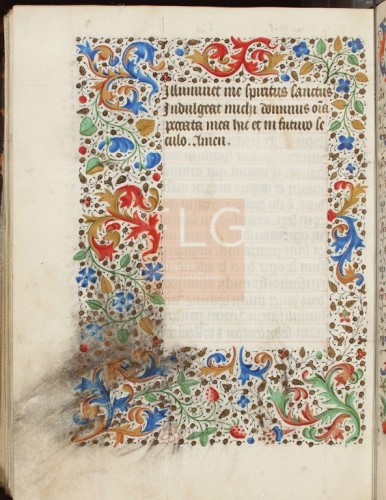 Illuminet me spiritus sanctus
Indulgeat michi dominus oia
peccata mea hic et in futuro se
culo. Amen.
LG